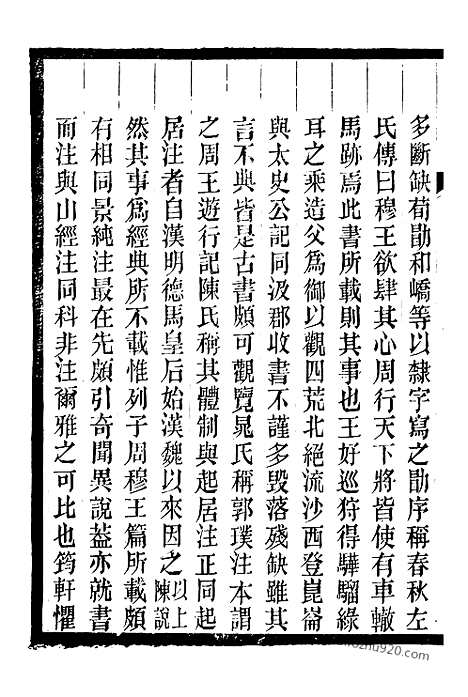 多斷缺荀勖和嶠等以隸字寫之勖序稱春秋左
氏傳曰穆王欲肆其心周行天下將皆使有車轍
馬跡焉此書所載則其事也王好巡狩得驊騮綠
耳之乘造父為御以觀四荒北絕流沙西登崑崙
與太史公記同汲郡收書不謹多毀落殘缺雖其
言不典皆是古書頗可觀覽晁氏稱郭璞注本謂
之周王遊行記陳氏稱其體制與起居注正同起
居注者自漢明德馬皇后始漢魏以來因之以上陳說
然其事為經典所不載惟列子周穆王篇所載頗
有相同景純注最在先頗引奇聞異說蓋亦就書
而注與山經注同科非注爾雅之可比也筠軒懼
zhou920.com